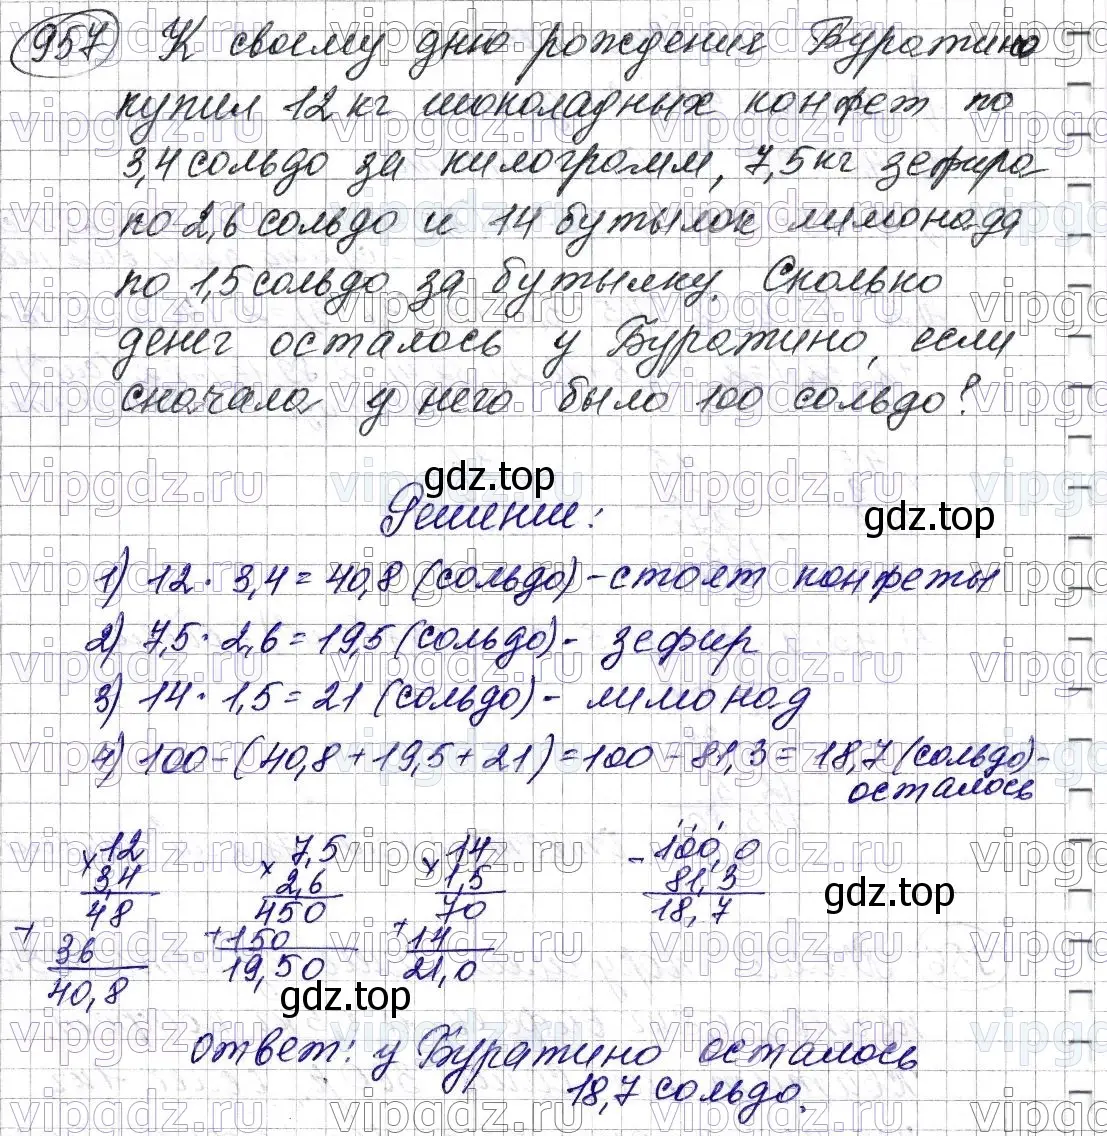 957 К своему дню рождения Буратино
купил 12 кг шоколадных конфет по
3,4 сольдо за килограмм, 7,5 кг зефира
по 2,6 сольдо и 14 бутылок лимонада
по 1,5 сольдо за бутылку. Сколько
денег осталось у Буратино, если
сначала у него было 100 сольдо?
gdz.top
Решение:
gdz.top
1) 12 · 3,4 = 40,8 (сольдо) - стоят конфеты
2) 7,5 · 2,6 = 19,5 (сольдо) - зефир
3) 14 · 1,5 = 21 (сольдо) - лимонад
4) 100 - (40,8 + 19,5 + 21) = 100 - 81,3 = 18,7 (сольдо) -
осталось
× 12 × 7,5 × 14 - 100,0
3,4 2,6 1,5 81,3
48 450 70 18,7
gdz.top
+ 36 + 150 + 14
40,8 19,50 21,0
gdz.top
Ответ: у Буратино осталось
18,7 сольдо.
vipgdz.ru